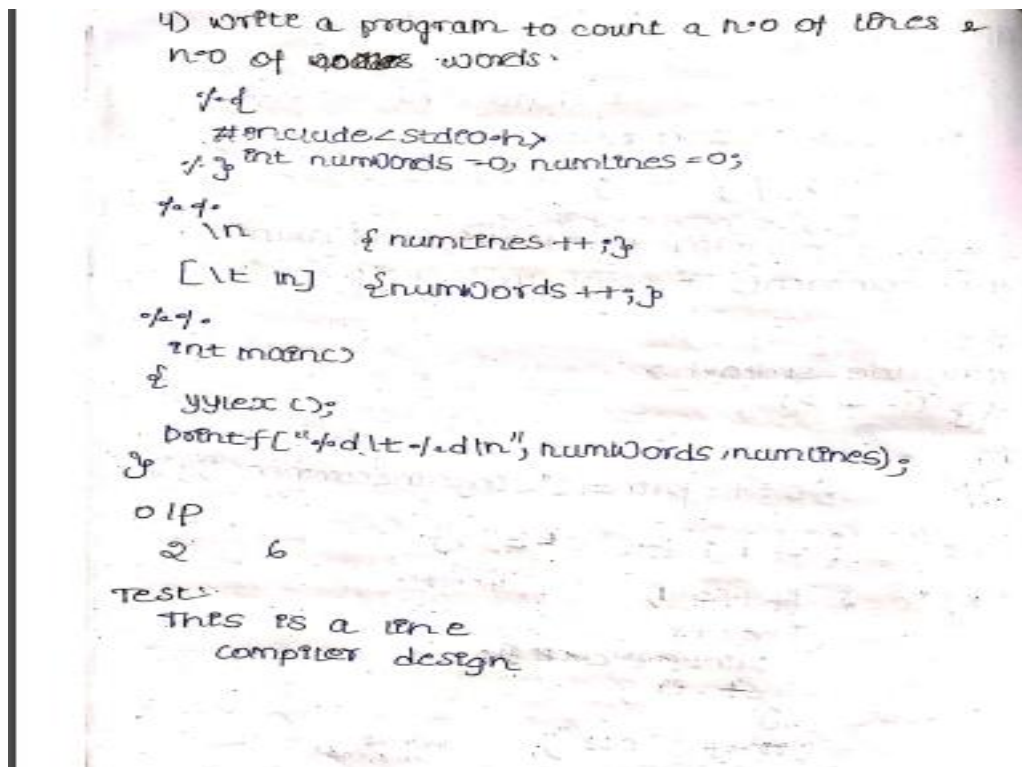 4) Write a program to count a n.o of lines &
n.o of words.
%{
#include<stdio.h>
%} int numWords =0, numLines =0;
%%
\n {numLines ++;}
[\t \n] {numWords ++;}
%%
int main()
{
yylex ();
printf("%d\t%d\n", numWords, numLines);
}
o/p
2 6
Test:
This is a line
compiler design